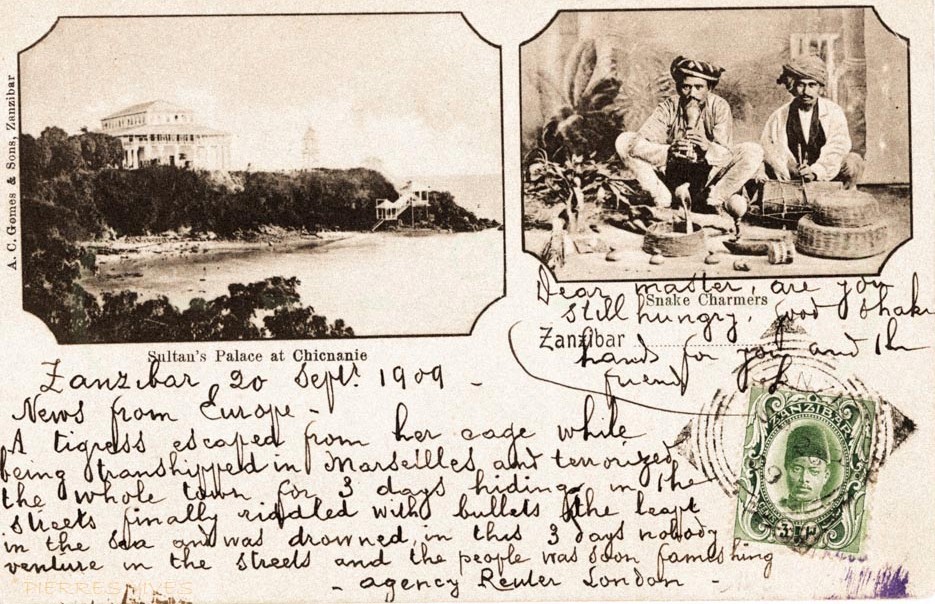 A. C. Gomes & Sons, Zanzibar
Sultan's Palace at Chicnanie
Snake Charmers
Zanzibar
Dear master, are you
still hungry, good shake
hands for you and the
friend
Zanzibar 20 Sept. 1909 -
News from Europe -
A tigress escaped from her cage while
being transhipped in Marseilles and terrorized
the whole town for 3 days hiding in the
streets finally riddled with bullets she leapt
in the sea and was drowned, in this 3 days nobody
venture in the streets and the people was soon fameshing
- agency Reuter London -
ZANZIBAR
PIERRESNIVES